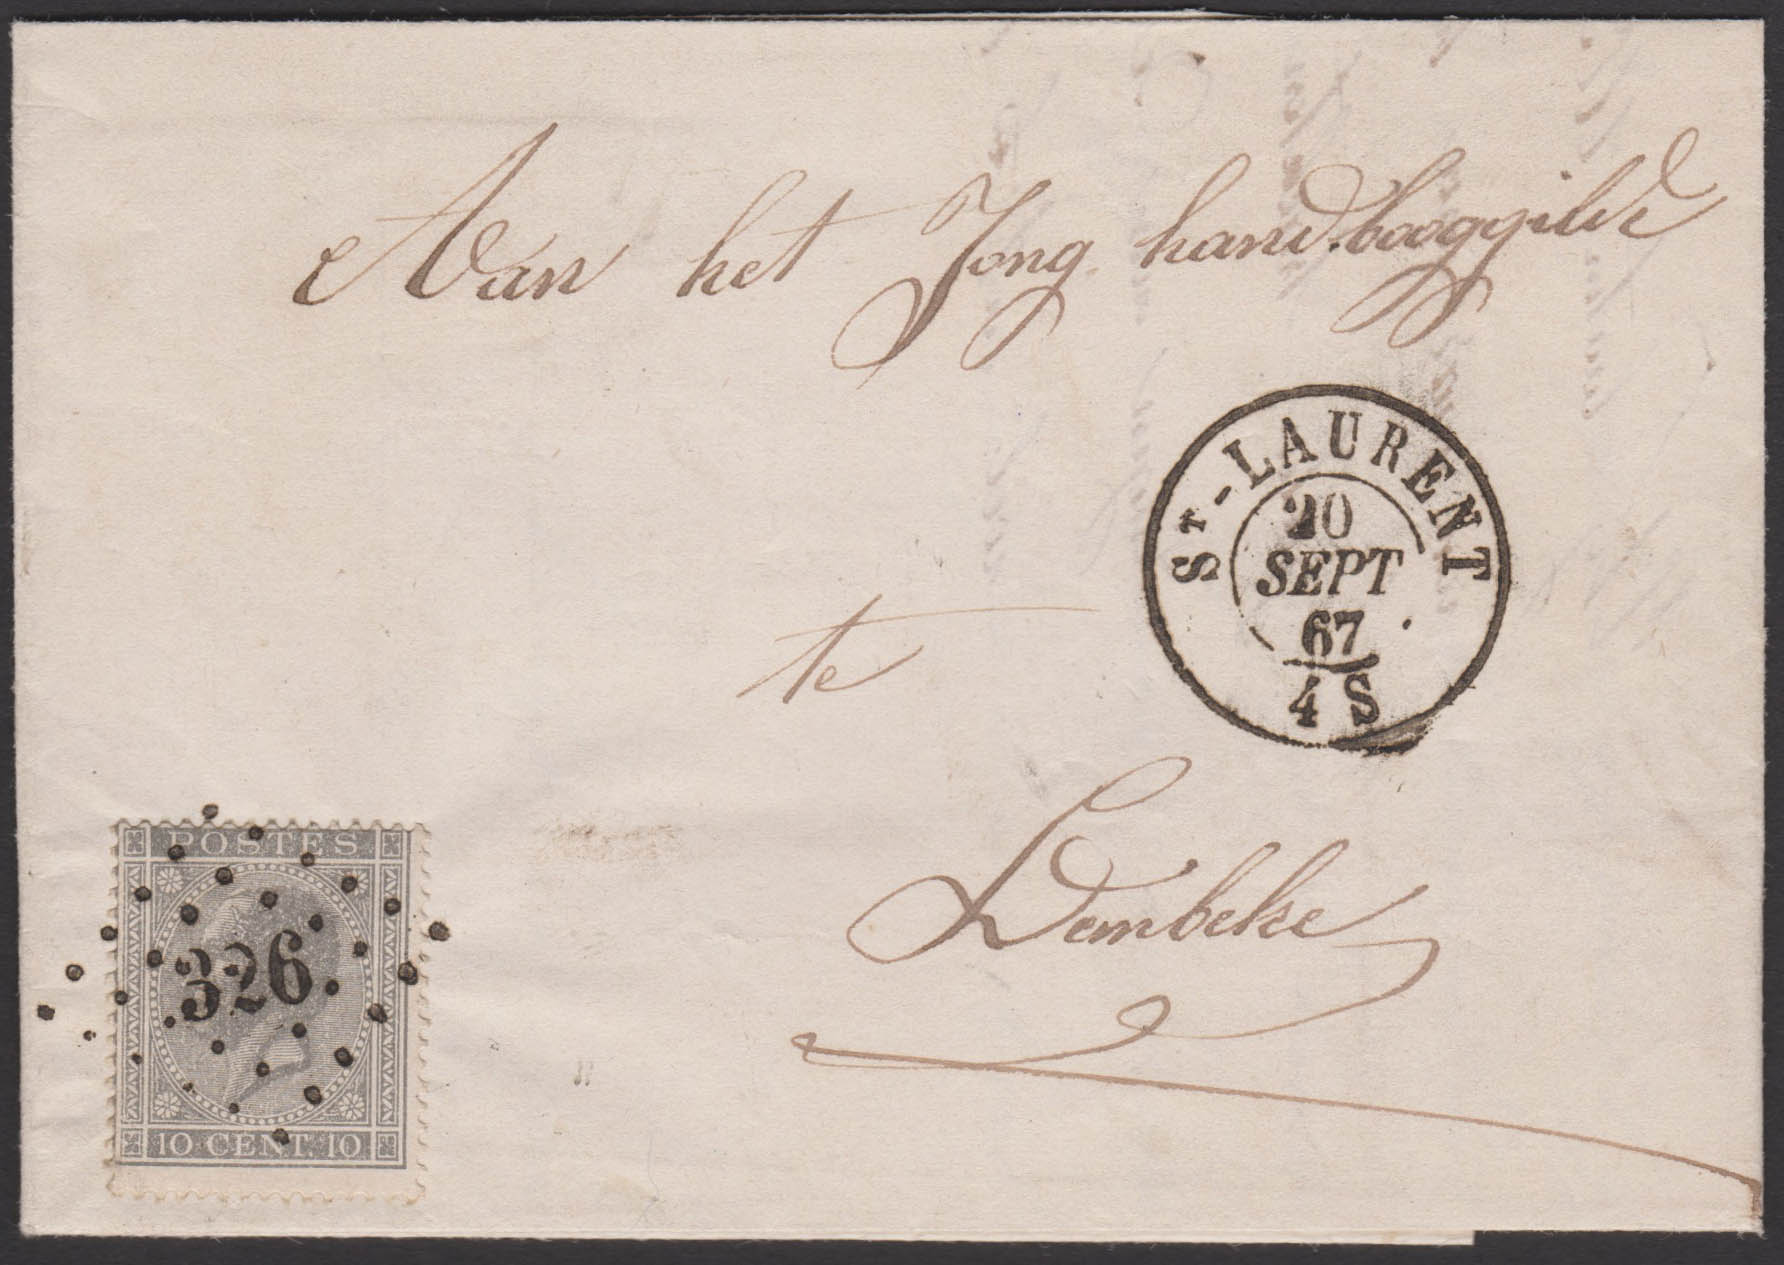 Aan het Jong hand.booggilde
ST-LAURENT
20
SEPT
67
4 S
te
Lembeke
POSTES
326
10 CENT. 10